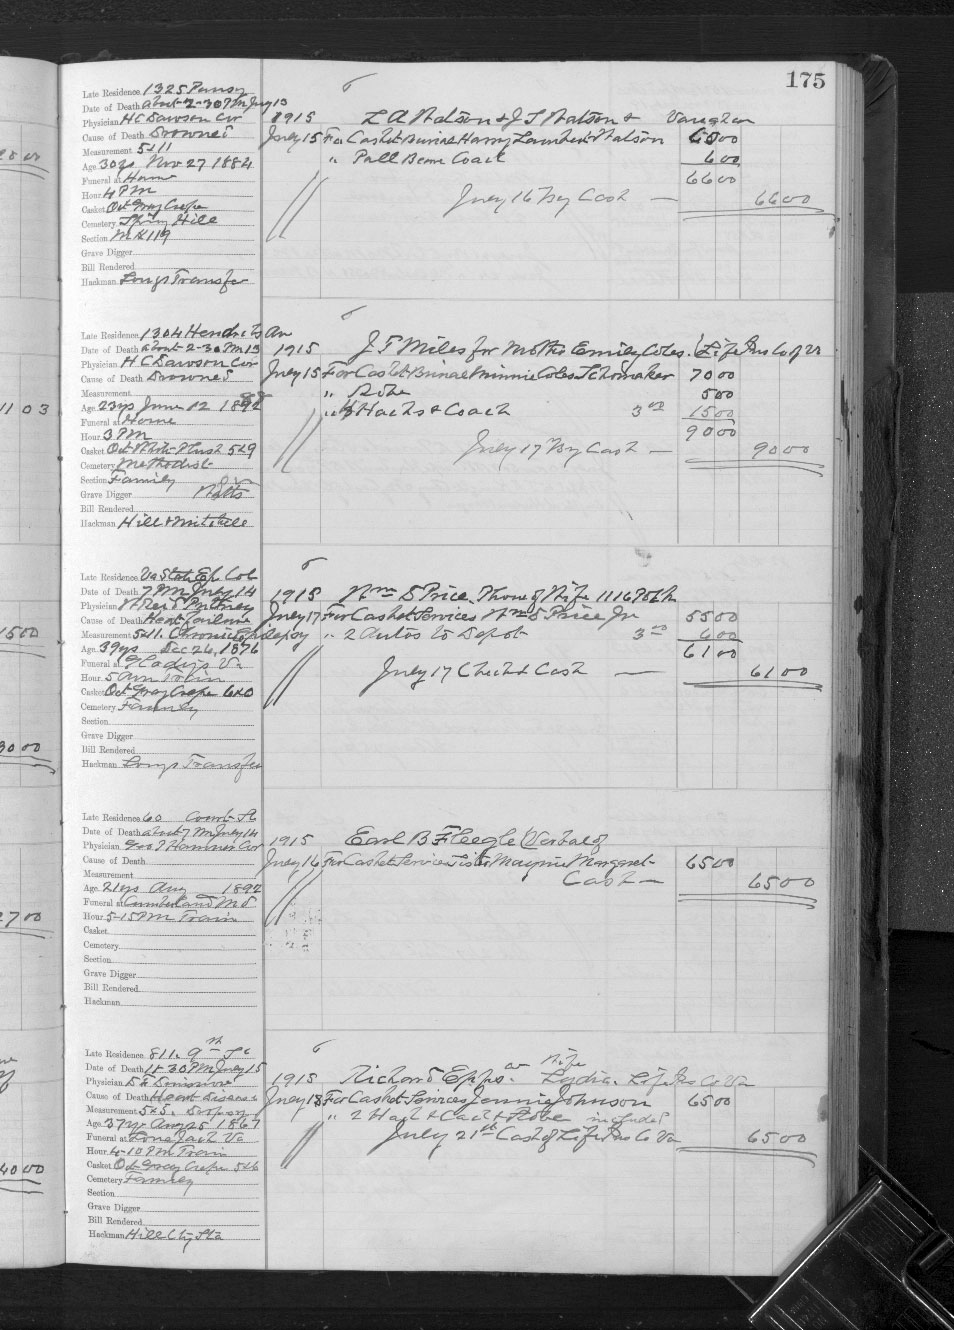 175
Late Residence 1325 Pansy
Date of Death about 2-30 PM July 13
Physician HC Dawson Cor
Cause of Death Drowned
Measurement 5-11
Age 30 ys Nov 27 1884
Funeral at Home
Hour 4 PM
Casket Oct Gray Crepe
Cemetery Spring Hill
Section 119
Grave Digger
Bill Rendered
Hackman Longs Transfer
1915 L A Watson & J S Watson & Vaughan
July 15 For Casket Burial Harry Lambert Watson 6000
" Pall Bearer Coach 600
6600
July 16 By Cash — 6600
Late Residence 1304 Hendricks Av
Date of Death about 2-30 PM 13
Physician H C Dawson Cor
Cause of Death Drowned
Measurement
Age 23 ys June 12 1892
Funeral at Home
Hour 3 PM
Casket Oct White Plush 5x9
Cemetery Methodist
Section Family
Grave Digger Watts
Bill Rendered
Hackman Hill & Mitchell
1915 J T Miles for Mother Emily Coles. (Life Ins Co of Va
July 15 For Casket Burial Minnie Coles Schomaker 7000
" Robe 500
" Hacks & Coach 3 00 1500
9000
July 17 By Cash — 9000
Late Residence Va State Ep Col
Date of Death 7 PM July 14
Physician
Cause of Death Heart Failure
Measurement 5-11. Chronic Epilepsy
Age 39 ys Dec 26, 1876
Funeral at Gladys Va
Hour 5 AM Train
Casket Oct Gray Crepe 6x0
Cemetery Family
Section
Grave Digger
Bill Rendered
Hackman Longs Transfer
1915 Wm D Price. Phone of Wife 1116 Polk
July 17 For Casket Services Wm D Price Jr 5500
" 2 Autos to Depot 3 00 600
6100
July 17 Check & Cash — 6100
Late Residence 60 Court St
Date of Death about 7 PM July 14
Physician Geo T Hancock Cor
Cause of Death
Measurement
Age 21 ys Aug 1892
Funeral at Cumberland Md
Hour 5-15 PM Train
Casket
Cemetery
Section
Grave Digger
Bill Rendered
Hackman
1915 Earl B Fleegle (Verbal of
July 16 For Casket Services Sister Maymie Margaret 6500
Cash — 6500
Late Residence 811. 9th St
Date of Death 11-30 PM July 15
Physician
Cause of Death Heart Disease
Measurement 5x5. Dropsy
Age 37 ys Aug 25 1867
Funeral at Lone Jack Va
Hour 4-10 PM Train
Casket Oct Gray Crepe 5x6
Cemetery Family
Section
Grave Digger
Bill Rendered
Hackman Hill City Sta
1915 Richard Epps. or Wife Lydia. Life Ins Co Va
July 18 For Casket Services Jennie Johnson 6500
" 2 Hack & Robe included
July 21st Cash of Life Ins Co Va 6500
1103
1500
3000
2700
4000